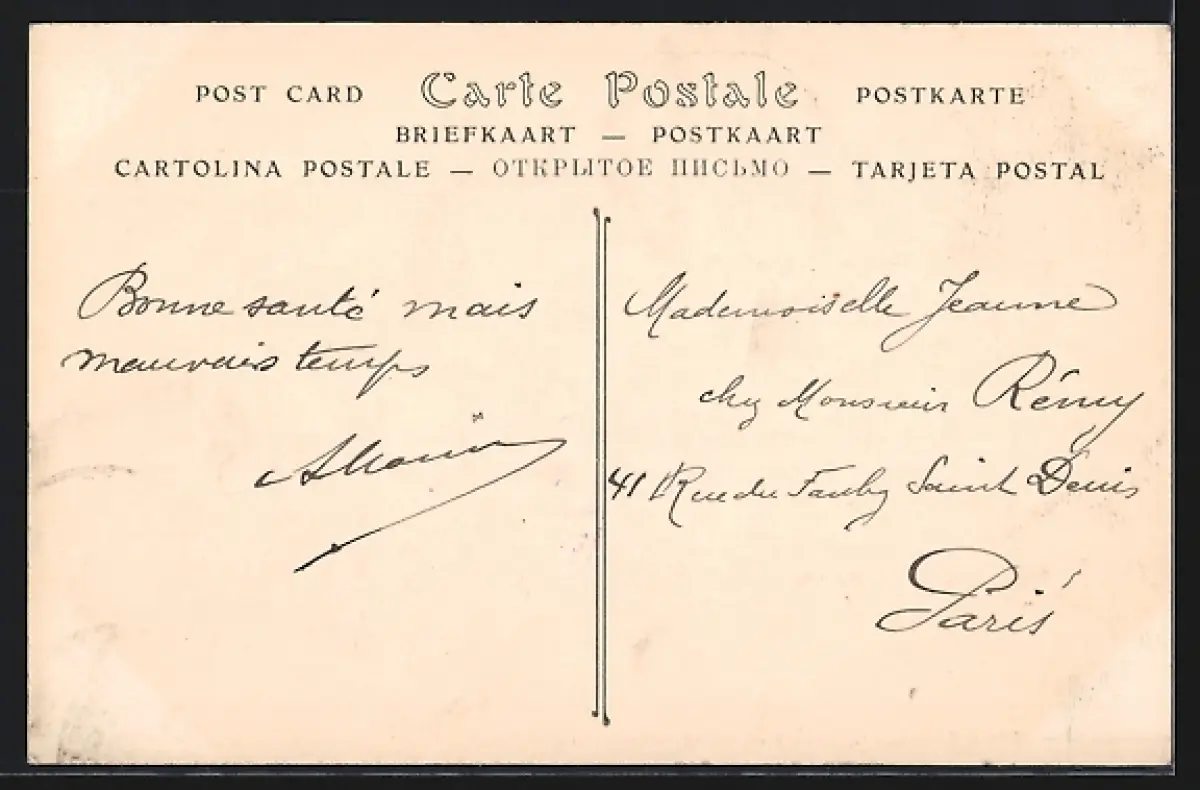 POST CARD Carte Postale POSTKARTE
BRIEFKAART — POSTKAART
CARTOLINA POSTALE — ОТКРЫТОЕ ПИСЬМО — TARJETA POSTAL
Bonne santé mais
mauvais temps
Mademoiselle Jeanne
chez Monsieur Rémy
41 Rue du Faubg Saint Denis
Paris